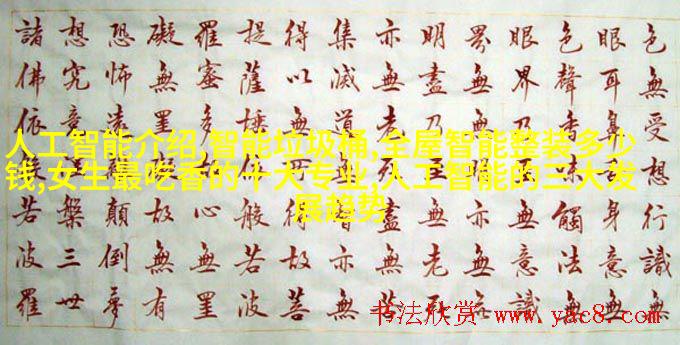 色無受想行識無
眼耳身意無
色聲觸法無
眼界無意識
界無亦無
明盡乃無老
亦無老盡無
集滅道亦無
得以無得故菩
提薩般若波
羅蜜多心無罣
礙無罣故無有
恐怖遠顛倒夢
想究竟槃三世
諸佛依若波羅
人工智能介绍,智能垃圾桶,全屋智能整装多少
钱,女生最吃香的十大专业,人工智能的三大发
展趋势
书法欣赏 www.yac8.com